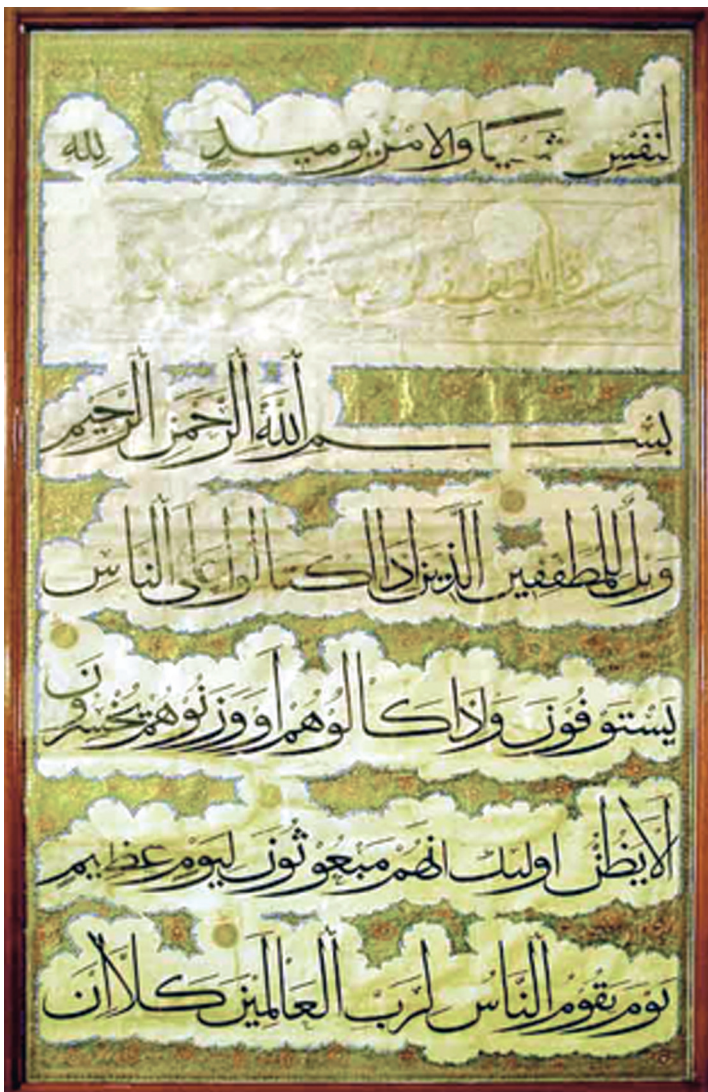 لنفس شيئا والامر يوميذ لله
بسم الله الرحمن الرحيم
ويل للمطففين الذين اذا اكتالوا على الناس
يستوفون واذا كالوهم او وزنوهم يخسرون
الا يظن اوليك انهم مبعوثون ليوم عظيم
يوم يقوم الناس لرب العالمين كلا ان